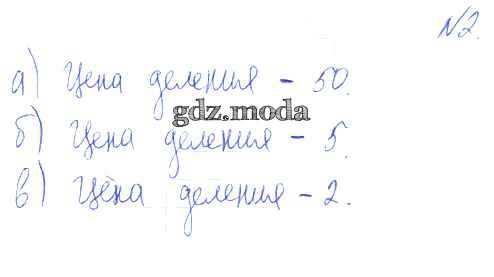 №2.
а) Цена деления - 50.
gdz.moda
б) Цена деления - 5.
в) Цена деления - 2.